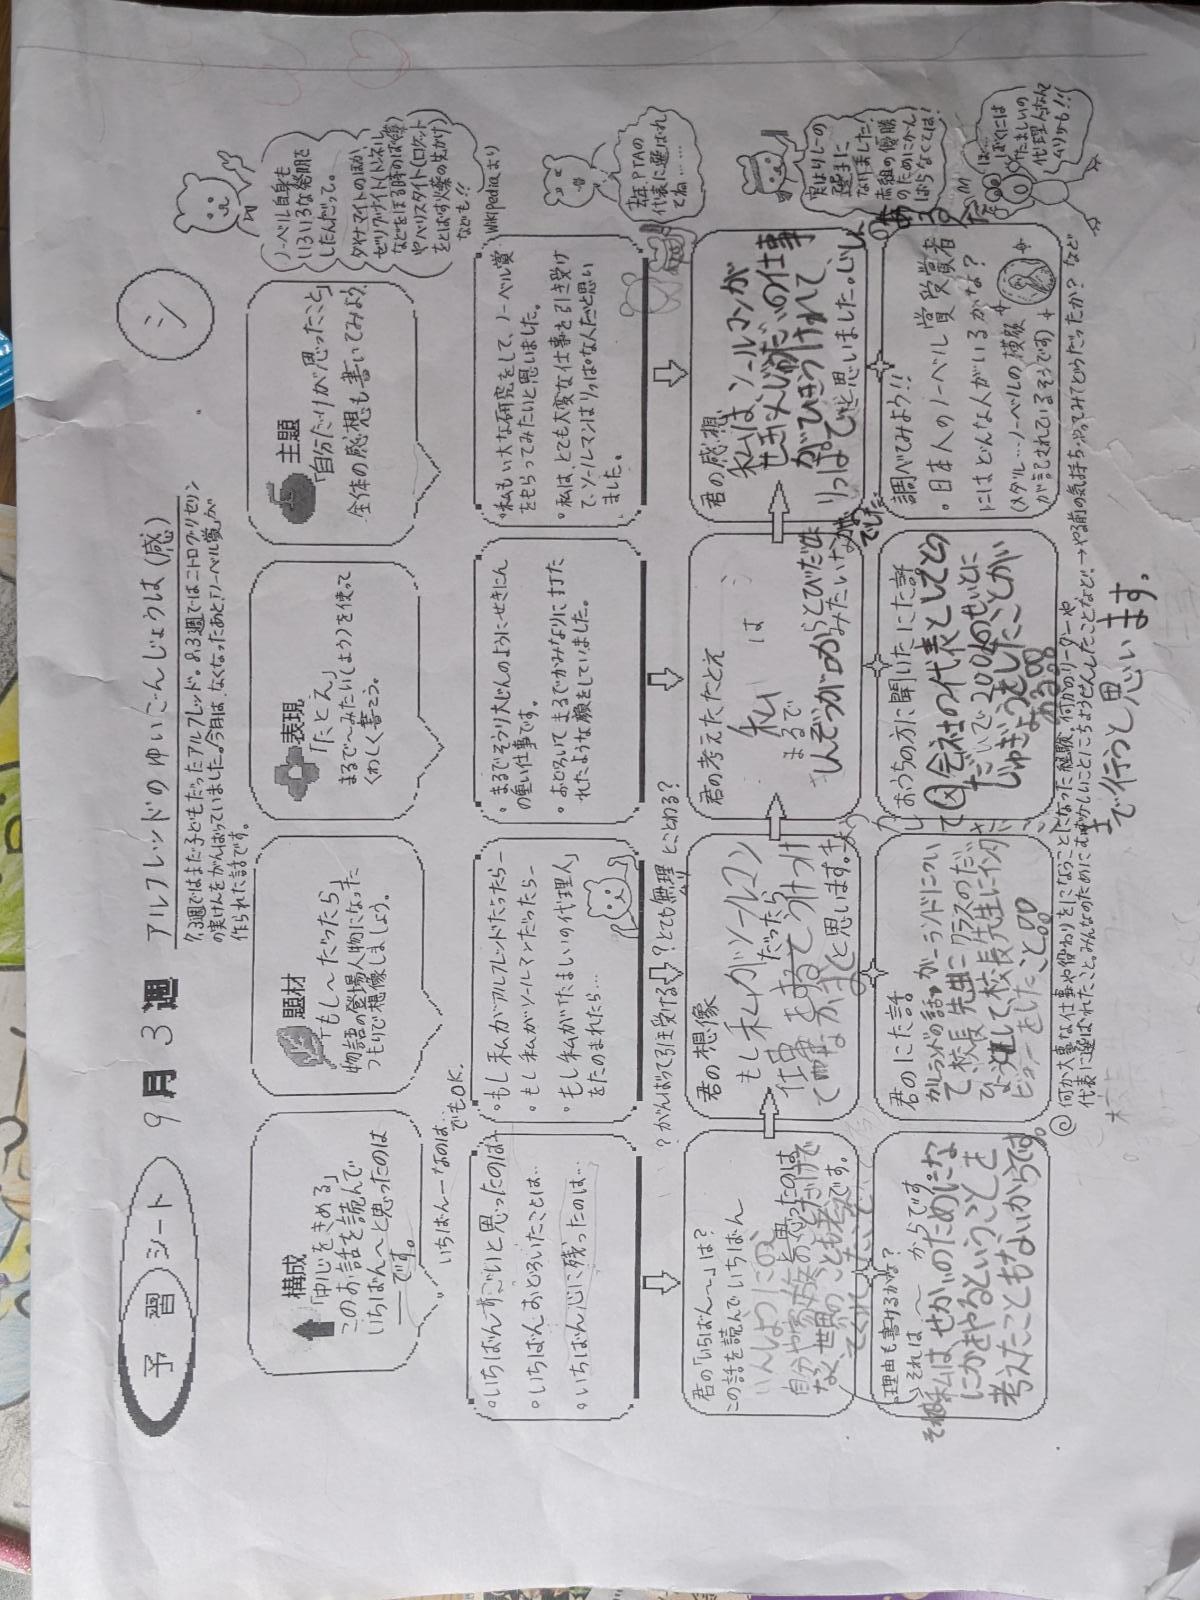 予習シート
9月3週
アルフレッドのゆいごんじょうは(感)
シ
7.3週ではまだ子どもだったアルフレッド。8.3週ではニトログリセリン
の実けんをがんばっていました。今月は、なくなったあと、「ノーベル賞」が
作られた話です。
構成
「中心をきめる」
このお話を読んで
いちばん〜と思ったのは
――です。
題材
「もし〜だったら」
物語の登場人物になった
つもりで想像しましょう。
表現
「たとえ」
まるで〜みたい(しょう)を使って
くわしく書こう。
主題
「自分だけが思ったこと」
全体の感想も書いてみよう
ノーベル自身も
いろいろな発明を
したんだって。
ダイナマイトのほか、
などをほる時のばく薬)
やバリスタイト(ロケット
をとばす火薬の先がけ)
なども!!
Wikipediaより
いちばん――なのは…
でもOK.
・いちばんすごいと思ったのは…
・いちばんおどろいたことは…
・いちばん心に残ったのは…
・もし私がアルフレッドだったら―
・もし私がソールマンだったら―
・もし私が「たましいの代理人」
をたのまれたら…
・まるでそうり大じんのようにせきにん
の重い仕事です。
・おどろいてまるでかみなりに打た
れたような顔をしていました。
・私もい大な研究をして、ノーベル賞
をもらってみたいと思いました。
・私は、とても大変な仕事を引き受け
て、ソールマンはりっぱな人だと思い
ました。
PTAの
代表に選ばれ
てね……
?がんばって引き受ける?とても無理とことわる?
君の「いちばん〜」は?
この話を読んでいちばん
自分や家族のだけで
なく、世界のことも考え
君の想像
もし私がソールマン
だったら
仕事をまねてうけつけ
と思います。
君の考えたたとえ
私は
まるで
しんぞうが口からとびだ
みたいな
でした
君の感想
私は、ソールマンが
せきにんじゅうだいの仕事
がでひきうけれて、
りっぱでと思いました。
実はリレーの
選手に
なりました!
赤組の優勝
のためにがん
ばらなくては!
ぼくには
たましいの
代理人なんて
ムリかも!!
理由も書けるかな?
それは〜からです
私は、せかいのためにな
にかをやるということを
考えたこともないからです。
君のにた話
て校長先生に
して校長先生にインタ
ビューをしたこと。
おうちの方に聞いたにた話
会社の代表として
200人のせいとに
じゅぎょうをしたことが
ある。
調べてみよう!!
・日本人のノーベル賞受賞者
にはどんな人がいるかな?
(メダル…ノーベルの横顔
が記されているそうです)
@何か大事な仕事や役わりをになうことになった経験、何かのリーダーや
代表に選ばれたこと。みんなのためにむずかしいことにちょうせんしたことなど。→やる前の気持ち・やってみてどうだったか?など
まで行つと思います。